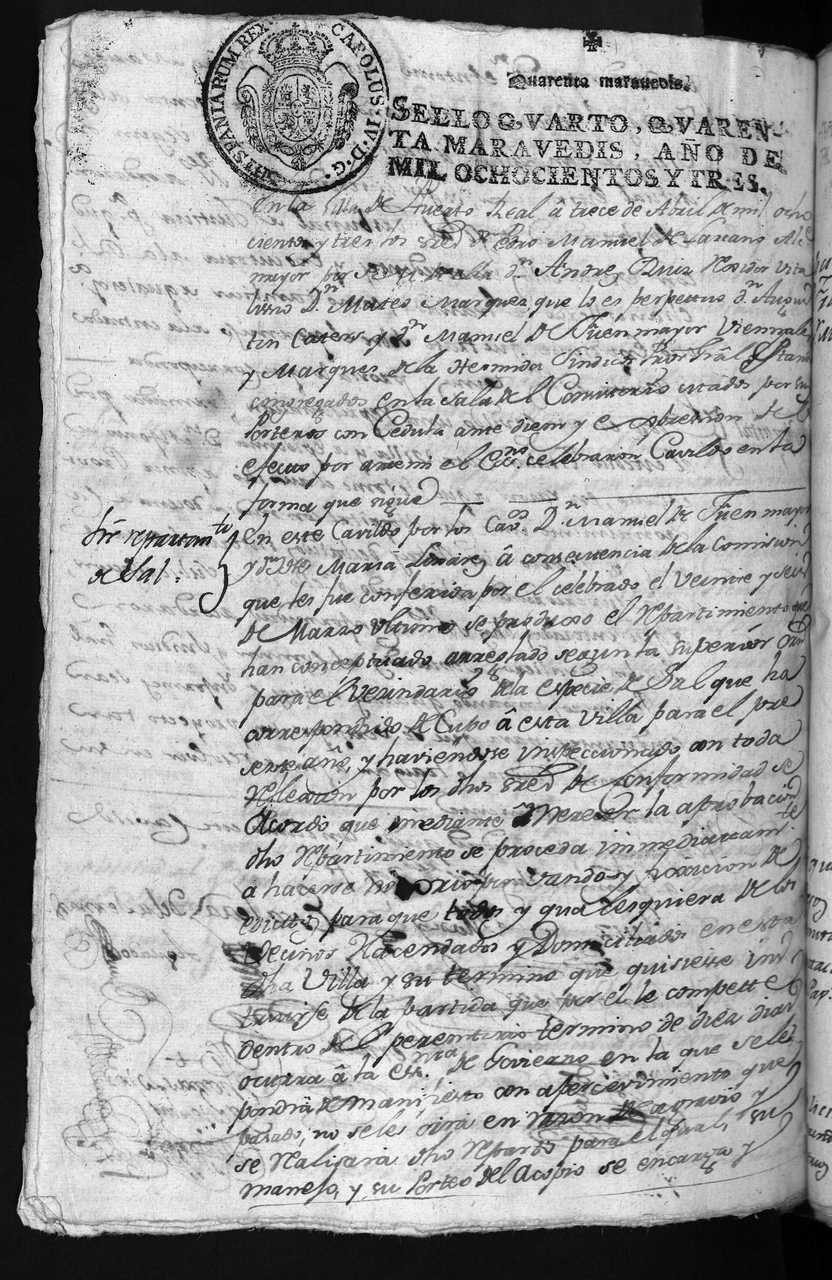 HISPANIARUM REX CAROLUS IV D. G.
Quarenta maravedis.
SELLO QVARTO, QVAREN-
TA MARAVEDIS, AÑO DE
MIL OCHOCIENTOS Y TRES.
En la Villa de Puerto Real â trece de Abril de mil ocho
cientos y tres los Sres. Dn. Pedro Manuel de Lascano Alc
mayor por S. M. de ella dn. Andres Ruiz Rexidor Vita
licio Dn. Mateo Marquez que lo es perpetuo dn. Augus
tin Caters y dn. Manuel de Fuenmayor Viennale
y Marques de la Hermida Sindico Pror. Gral Estan
congregados en la Sala de el Consistorio citados por sus
Porteros con Cedula ante diem y expresion de el
efecto por antemi el Esno. celebraron Cavildo en la
forma que sigue
Sre. repartamto.
de Sal.
En este Cavildo por los Cavos. Dn. Manuel de Fuenmayor
y dn. Jose Maria Linares â consecuencia de la Comision
que les fue conferida por el celebrado el Veinte y seis
de Marzo ultimo se produxo el Repartimiento que
han conceptuado arreglado segun la superior orn
para el Vecindario de la especie de Sal que ha
correspondido de Cupo â esta Villa para el pre
sente año, y haviendose inspeccionado con toda
reflexion por los dhos Sres. de conformidad se
Acordo que mediante â merecer la aprobacion
dho Repartimiento se proceda inmediatamte.
a hacerse notorio por vando y fixacion de
edictos para que todos y qualesquiera de los
Vecinos Hacendados y Domiciliados en esta
dha Villa y su termino que quisiese ins
truirse de la partida que por el le compette
dentro de el perentorio termino de diez dias
ocurra â la Esnia. de Govierno en la que se les
pondrâ de manifiesto con apercevimiento que
pasado, no se les oirâ en razon de agravio y
se realisarâ dho Reparto para el qual, su
manejo, y su Porteo del Acopio se encarga y